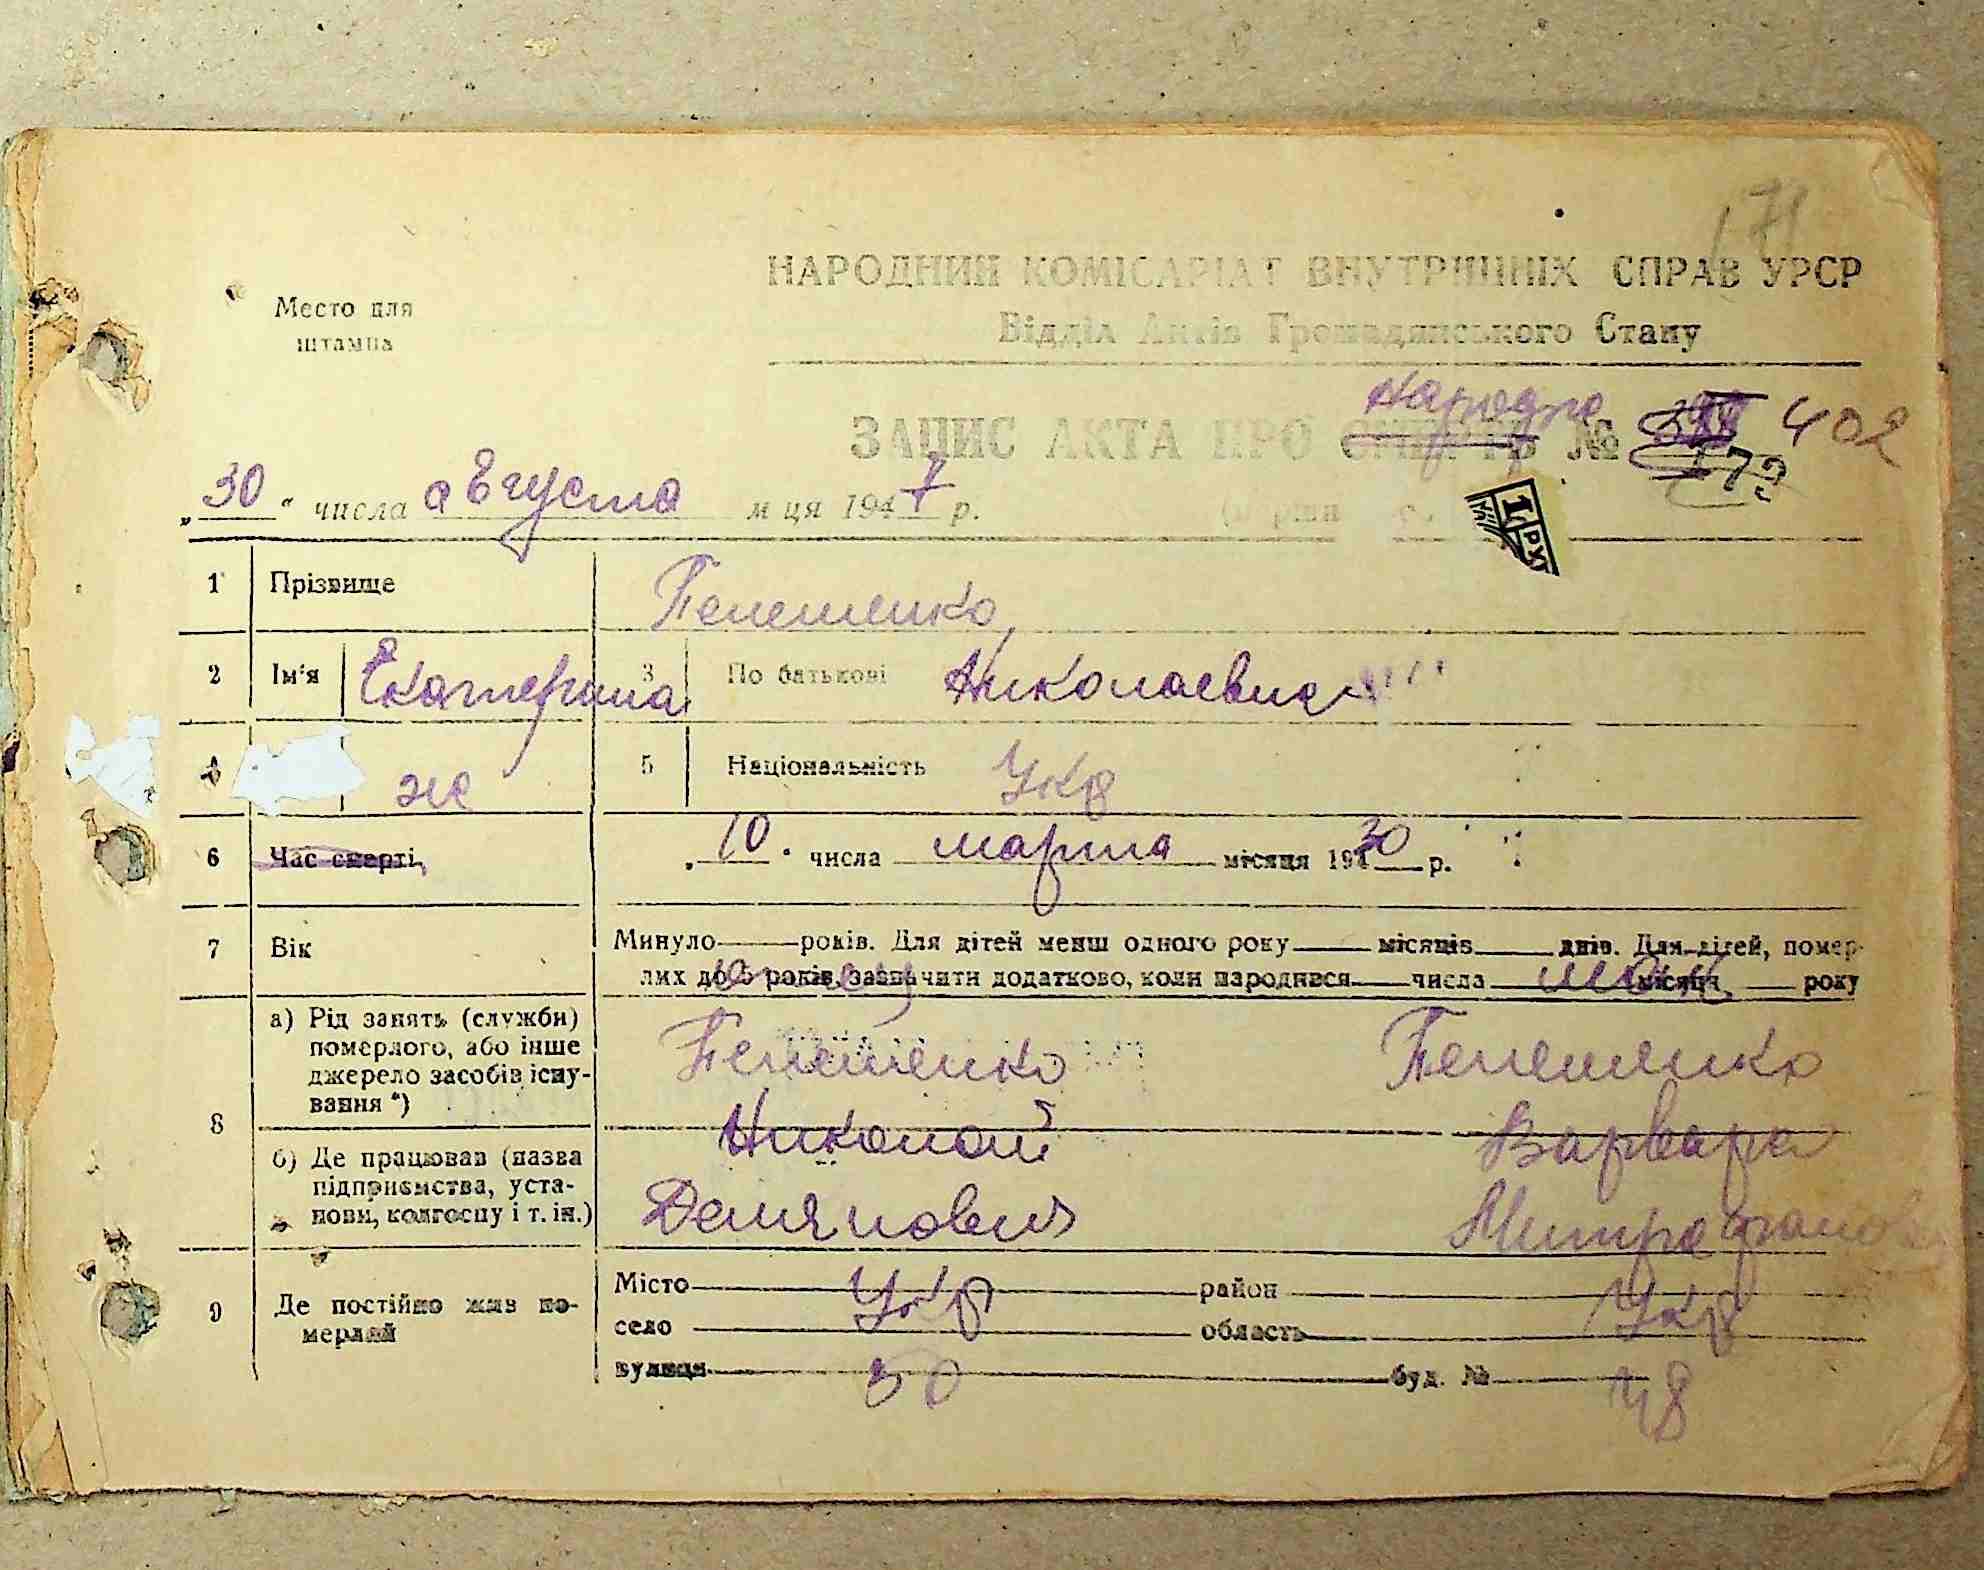 171
Место для
штампа
НАРОДНИЙ КОМІСАРІАТ ВНУТРІШНІХ СПРАВ УРСР
Відділ Актів Громадянського Стану
ЗАПИС АКТА ПРО смерть народж № 402
173
„30“ числа августа м ця 1947 р.
1 Прізвище Пелешенко
2 Ім'я Екатерина 3 По батькові Николаевна
4 же 5 Національність Укр
6 Час смерті „10“ числа марта місяця 1930 р.
7 Вік Минуло рокі́в. Для дітей менш одного року місяців днів. Для дітей, помер-
лих до 5 років, зазначити додатково, коли народився числа місяця року
8 а) Рід занять (служби)
померлого, або інше
джерело засобів існу-
вання *)
Пелешенко Пелешенко
Николай Варвара
б) Де працював (назва
підприємства, уста-
нови, колгоспу і т. ін.)
Демянович Митрофанов
9 Де постійно жив по-
мерлий
Місто Укр район Укр
село область
вулиця 50 буд. № 48